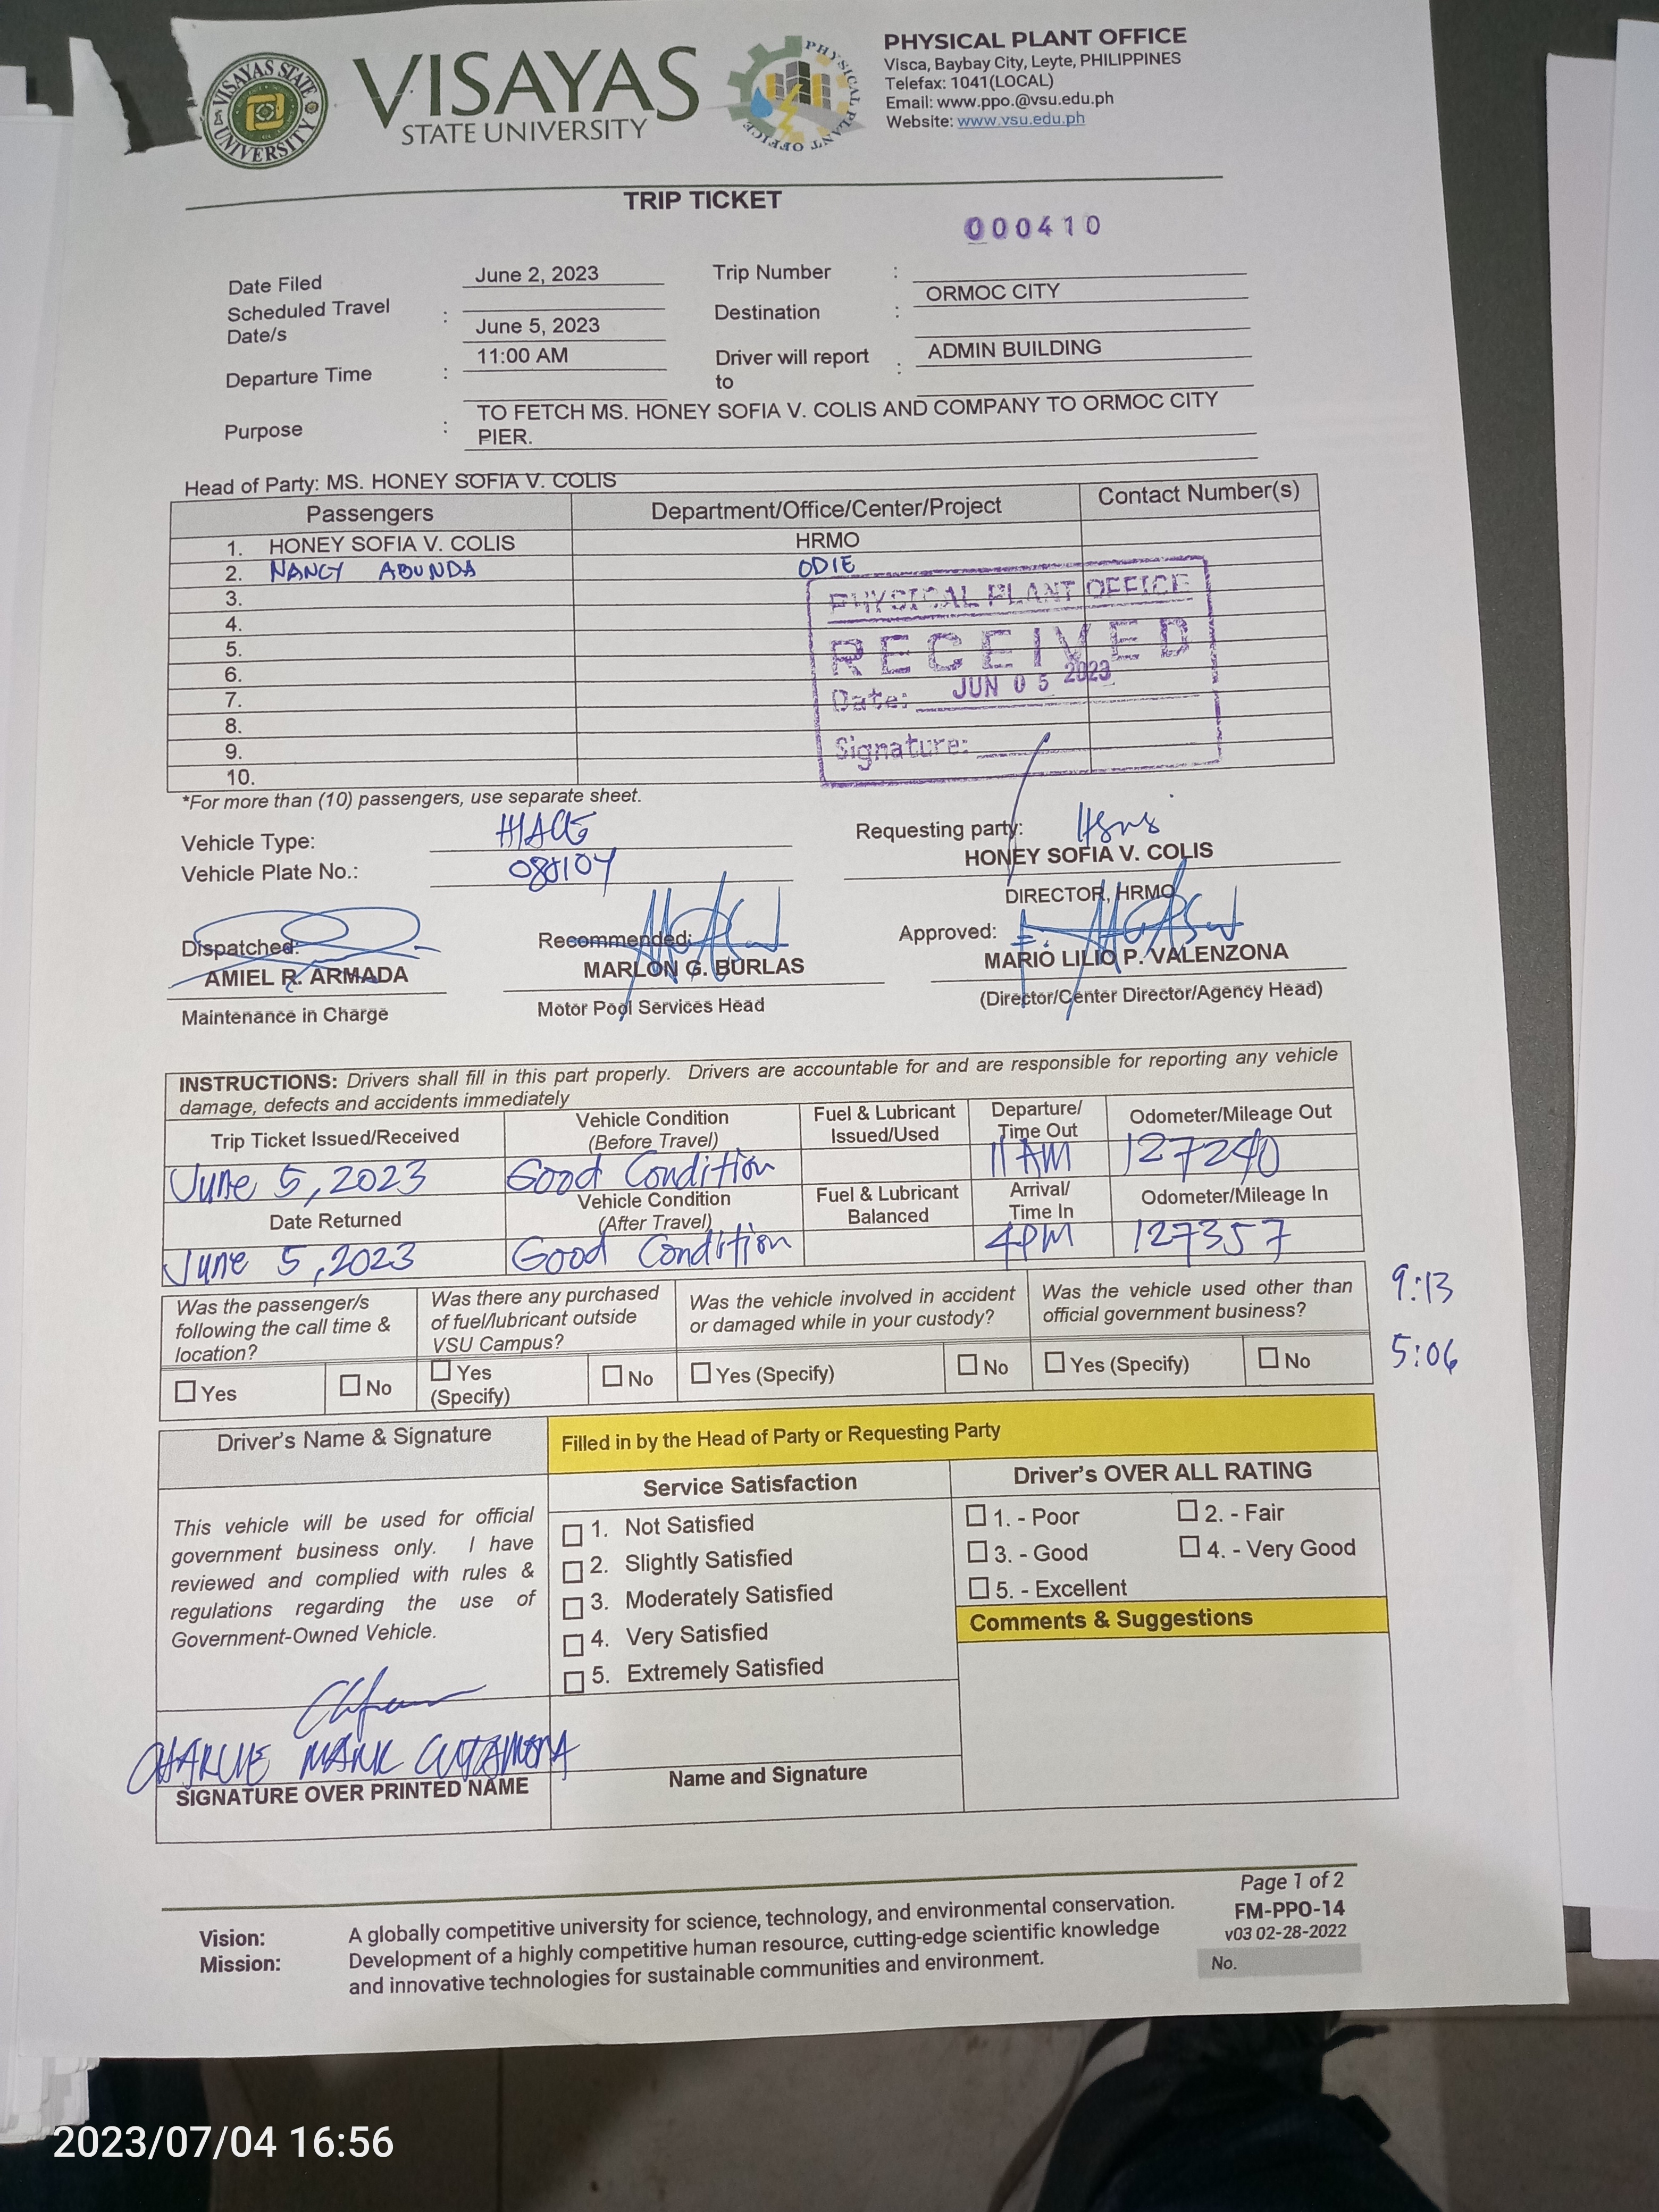 VISAYAS STATE UNIVERSITY
VISAYAS
STATE UNIVERSITY
PHYSICAL PLANT OFFICE
PHYSICAL PLANT OFFICE
Visca, Baybay City, Leyte, PHILIPPINES
Telefax: 1041(LOCAL)
Email: www.ppo.@vsu.edu.ph
Website: www.vsu.edu.ph
TRIP TICKET
000410
Date Filed June 2, 2023 Trip Number :
Scheduled Travel Date/s : June 5, 2023 Destination : ORMOC CITY
Departure Time : 11:00 AM Driver will report to : ADMIN BUILDING
Purpose : TO FETCH MS. HONEY SOFIA V. COLIS AND COMPANY TO ORMOC CITY
PIER.
Head of Party: MS. HONEY SOFIA V. COLIS
Passengers Department/Office/Center/Project Contact Number(s)
1. HONEY SOFIA V. COLIS HRMO
2. NANCY ABUNDA ODIE
3.
4.
5.
6.
7.
8.
9.
10.
PHYSICAL PLANT OFFICE
RECEIVED
Date: JUN 05 2023
Signature:
*For more than (10) passengers, use separate sheet.
Vehicle Type: HIACE
Vehicle Plate No.:
Requesting party:
HONEY SOFIA V. COLIS
DIRECTOR, HRMO
Dispatched: Recommended: Approved:
AMIEL R. ARMADA MARLON G. BURLAS MARIO LILIO P. VALENZONA
Maintenance in Charge Motor Pool Services Head (Director/Center Director/Agency Head)
INSTRUCTIONS: Drivers shall fill in this part properly. Drivers are accountable for and are responsible for reporting any vehicle
damage, defects and accidents immediately
Trip Ticket Issued/Received Vehicle Condition (Before Travel) Fuel & Lubricant Issued/Used Departure/ Time Out Odometer/Mileage Out
June 5, 2023 Good Condition 11 AM 127240
Date Returned Vehicle Condition (After Travel) Fuel & Lubricant Balanced Arrival/ Time In Odometer/Mileage In
June 5, 2023 Good Condition 4PM 127357
9:13
5:06
Was the passenger/s following the call time & location? Was there any purchased of fuel/lubricant outside VSU Campus? Was the vehicle involved in accident or damaged while in your custody? Was the vehicle used other than official government business?
Yes No Yes (Specify) No Yes (Specify) No Yes (Specify) No
Driver's Name & Signature
Filled in by the Head of Party or Requesting Party
This vehicle will be used for official
government business only. I have
reviewed and complied with rules &
regulations regarding the use of
Government-Owned Vehicle.
CHARLIE MARK CUTAMORA
SIGNATURE OVER PRINTED NAME
Service Satisfaction
1. Not Satisfied
2. Slightly Satisfied
3. Moderately Satisfied
4. Very Satisfied
5. Extremely Satisfied
Name and Signature
Driver's OVER ALL RATING
1. - Poor 2. - Fair
3. - Good 4. - Very Good
5. - Excellent
Comments & Suggestions
Vision: A globally competitive university for science, technology, and environmental conservation.
Mission: Development of a highly competitive human resource, cutting-edge scientific knowledge
and innovative technologies for sustainable communities and environment.
Page 1 of 2
FM-PPO-14
v03 02-28-2022
No.
2023/07/04 16:56